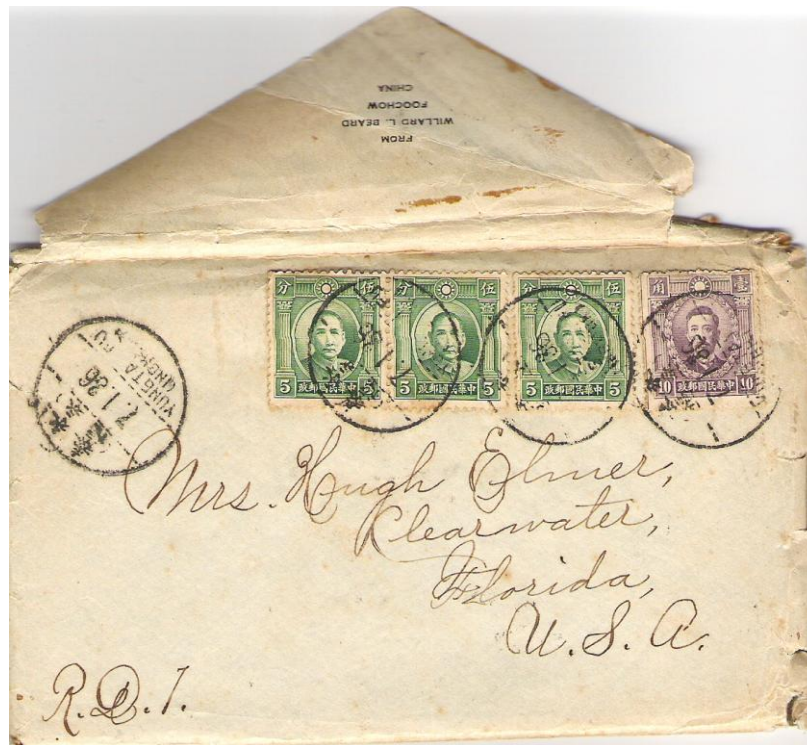 FROM
WILLARD L. BEARD
FOOCHOW
CHINA
伍分
5 中華民國郵政 5
伍分
5 中華民國郵政 5
伍分
5 中華民國郵政 5
壹角
10 中華民國郵政 10
7.1.36
Mrs. Hugh Elmer,
Clearwater,
Florida,
U.S.A.
R.D.1.